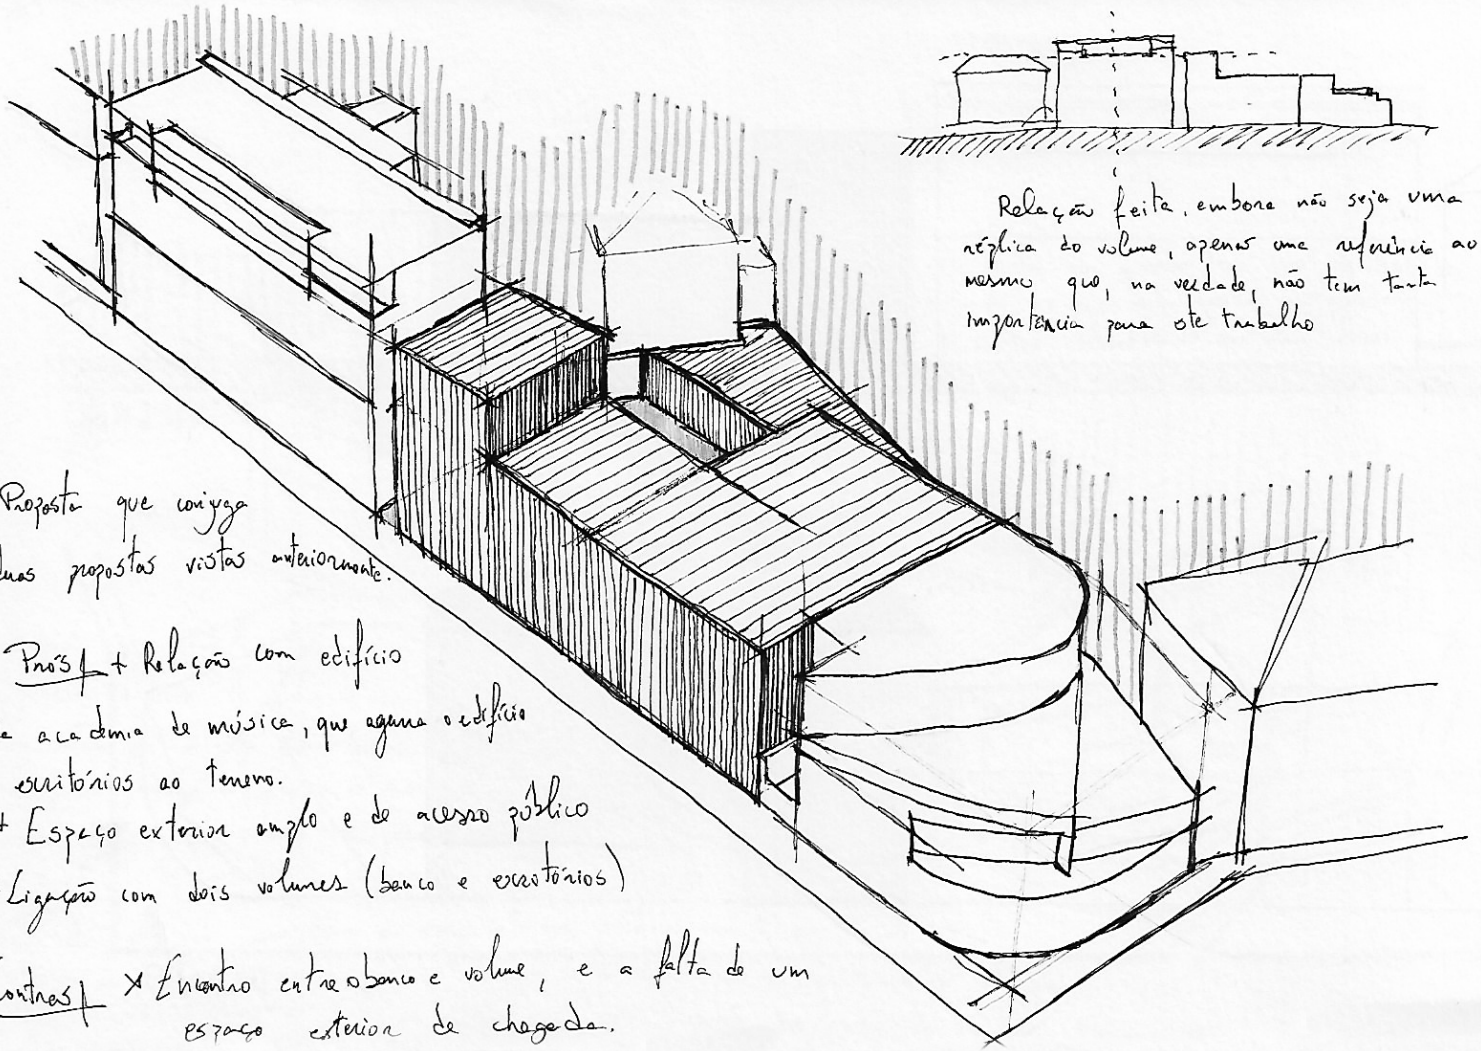 Relação feita, embora não seja uma
réplica do volume, apenas uma referência ao
mesmo que, na verdade, não tem tanta
importância para este trabalho
Proposta que conjuga
duas propostas vistas anteriormente.
Prós + Relação com edifício
academia de música, que agarra o edifício
escritórios ao terreno.
+ Espaço exterior amplo e de acesso público
Ligação com dois volumes (banco e escritórios)
Contras × Encontro entre o banco e volume, e a falta de um
espaço exterior de chegada.